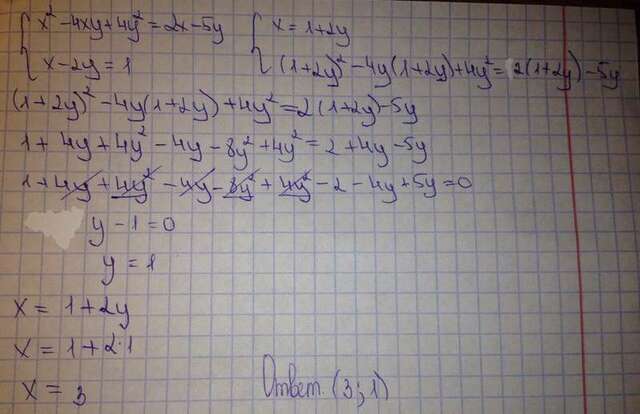 { x² - 4xy + 4y² = 2x - 5y
{ x - 2y = 1
{ x = 1 + 2y
{ (1 + 2y)² - 4y(1 + 2y) + 4y² = 2(1 + 2y) - 5y
(1 + 2y)² - 4y(1 + 2y) + 4y² = 2(1 + 2y) - 5y
1 + 4y + 4y² - 4y - 8y² + 4y² = 2 + 4y - 5y
1 + 4y + 4y² - 4y - 8y² + 4y² - 2 - 4y + 5y = 0
y - 1 = 0
y = 1
x = 1 + 2y
x = 1 + 2·1
x = 3
Ответ. (3; 1)